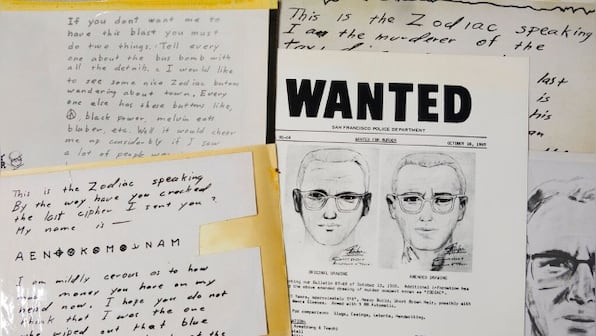 If you dont want me to
have this blast you must
do two things. Tell every
one about the bus bomb with
all the details. I would like
to see some nice Zodiac butons
wandering about town. Every
one else has these buttons like,
☮, black power, melvin eats
blaber, etc. Well it would cheer
me up considerably if I saw
a lot of people
This is the Zodiac speaking
I am the murderer of the
last
is
his
an
This is the Zodiac speaking
By the way have you cracked
the last cipher I sent you?
My name is —
AEN⌖⊕K⊕M⊕⅃NAM
I am mildly cerous as to how
money you have on my
head now. I hope you do not
think that I was the one
wiped out that blue
the
WANTED
SAN FRANCISCO POLICE DEPARTMENT
WANTED FOR MURDER
OCTOBER 18, 1969
ORIGINAL DRAWING
AMENDED DRAWING
our Bulletin 87-69 of October 13, 1969. Additional information has
the above amended drawing of murder suspect known as "ZODIAC".
Years, approximately 5'8", Heavy Build, Short Brown Hair, possibly with
Glasses. Armed with 9 MM Automatic.
for comparison: Slugs, Casings, Latents, Handwriting.
Armstrong & Toschi